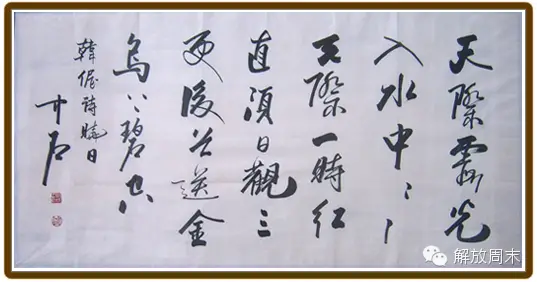 天際霞光
入水中〻〻
天際一時紅
直須日觀三
更後首送金
烏上碧空
韓偓詩曉日
中石
解放周末